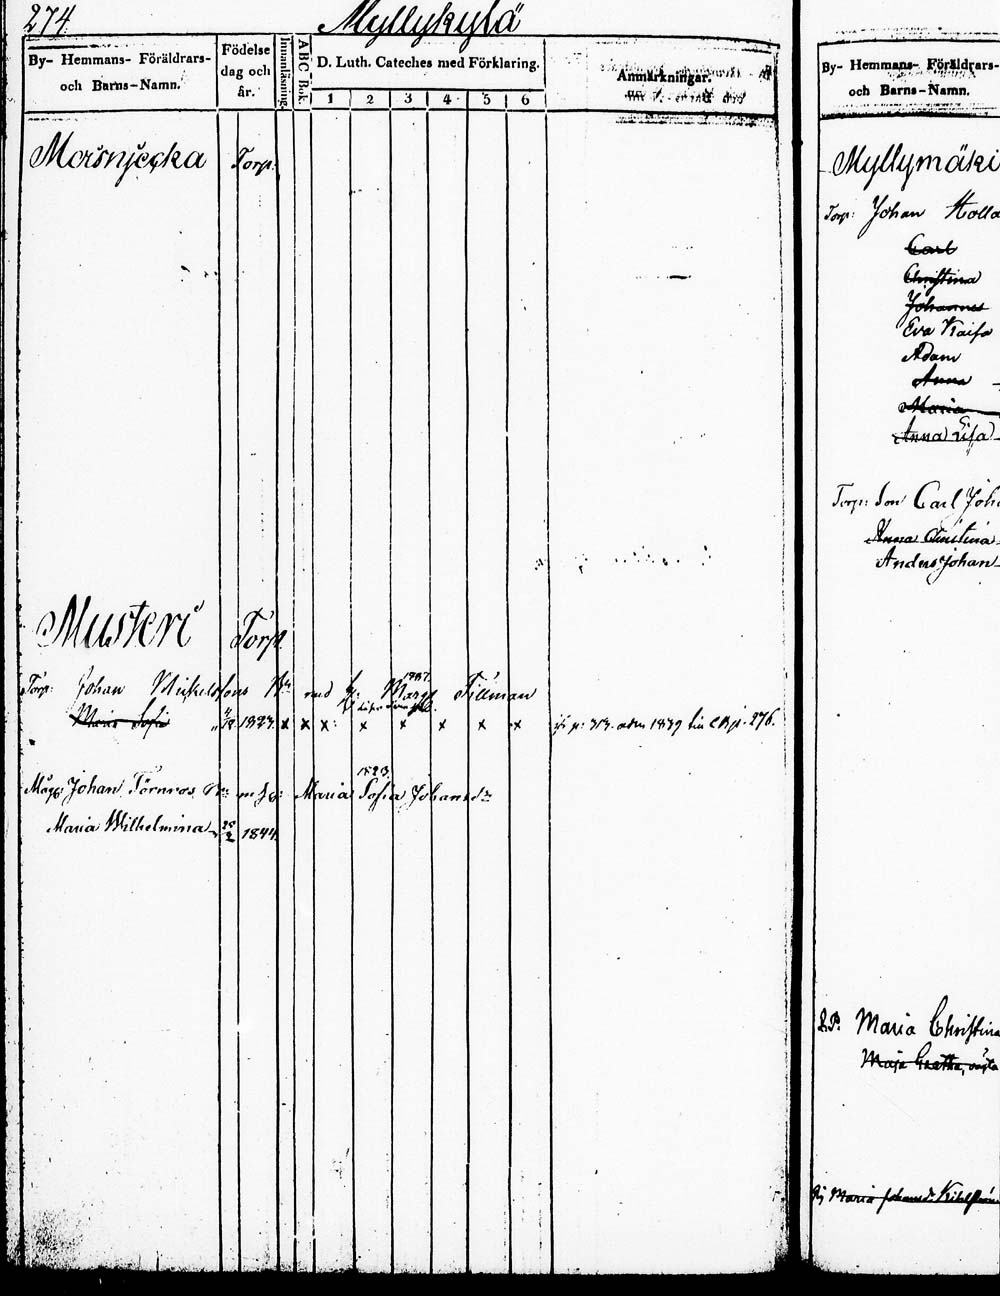 274 Myllykylä
By- Hemmans- Föräldrars- och Barns-Namn.
Födelse dag och år.
Innanläsning.
ABC Bok.
D. Luth. Cateches med Förklaring.
1 2 3 4 5 6
Anmärkningar.
Torp.
Musteri Torp
Torp: Johan Tillman
1807.
Maria Sofia 1823. x x x x x x x x 1839 276.
1823.
Måg: Johan Törnros Maria Sofia Johansdr
Maria Wilhelmina 28/2 1844.
By- Hemmans- Föräldrars- och Barns-Namn.
Myllymäki
Torp: Johan
Carl
Christina
Johannes
Eva Kaisa
Adam
Anna
Maria
Anna Lisa
Torp: Son Carl Joh
Anna Christina
Anders Johan
Maria Christina
Maja Greta
Maria Johansdr